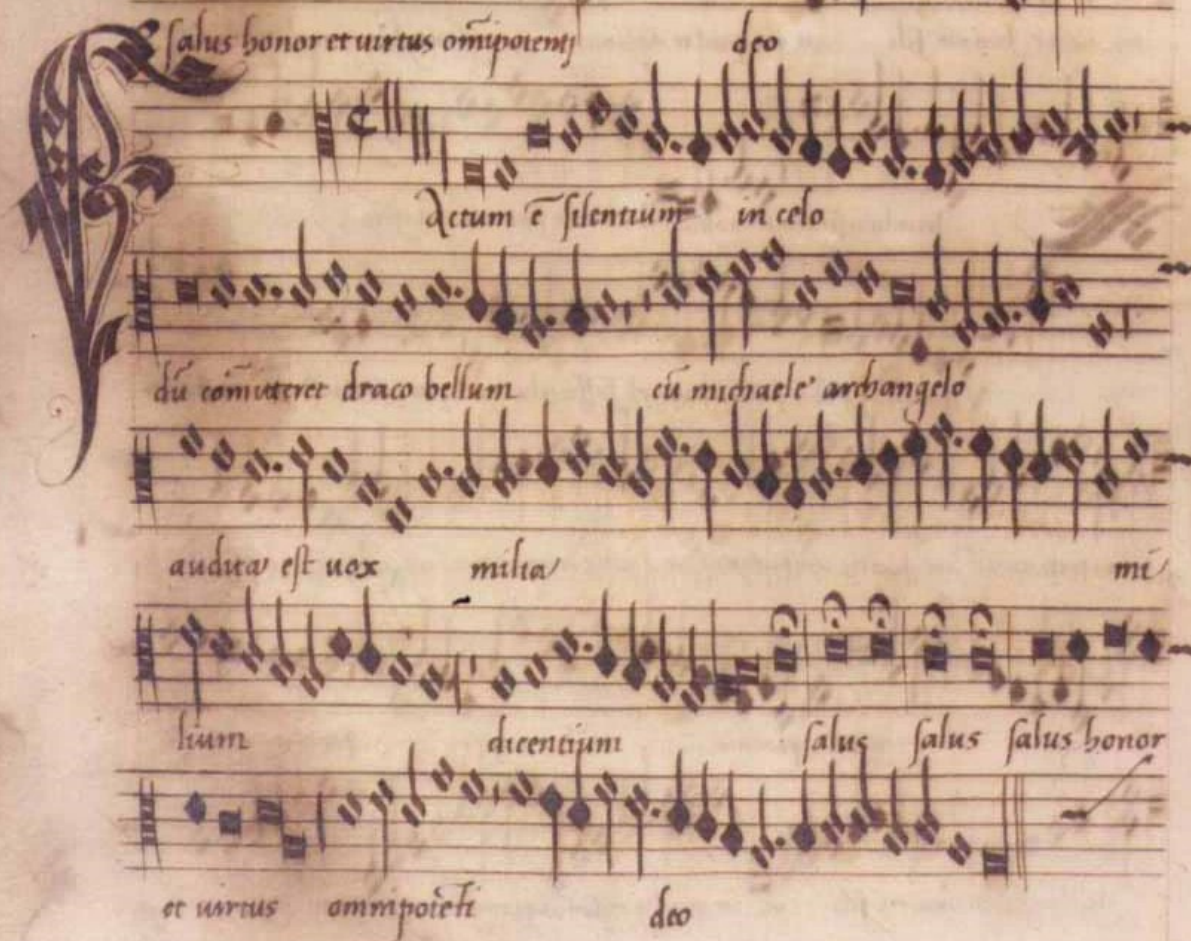 salus honor et uirtus om̄ipotentj deo
Actum ē silentium in celo
dū com̄itteret draco bellum cū michaele archangelo
audita est uox milia mi
lium dicentium salus salus salus honor
et uirtus omnipotēti deo